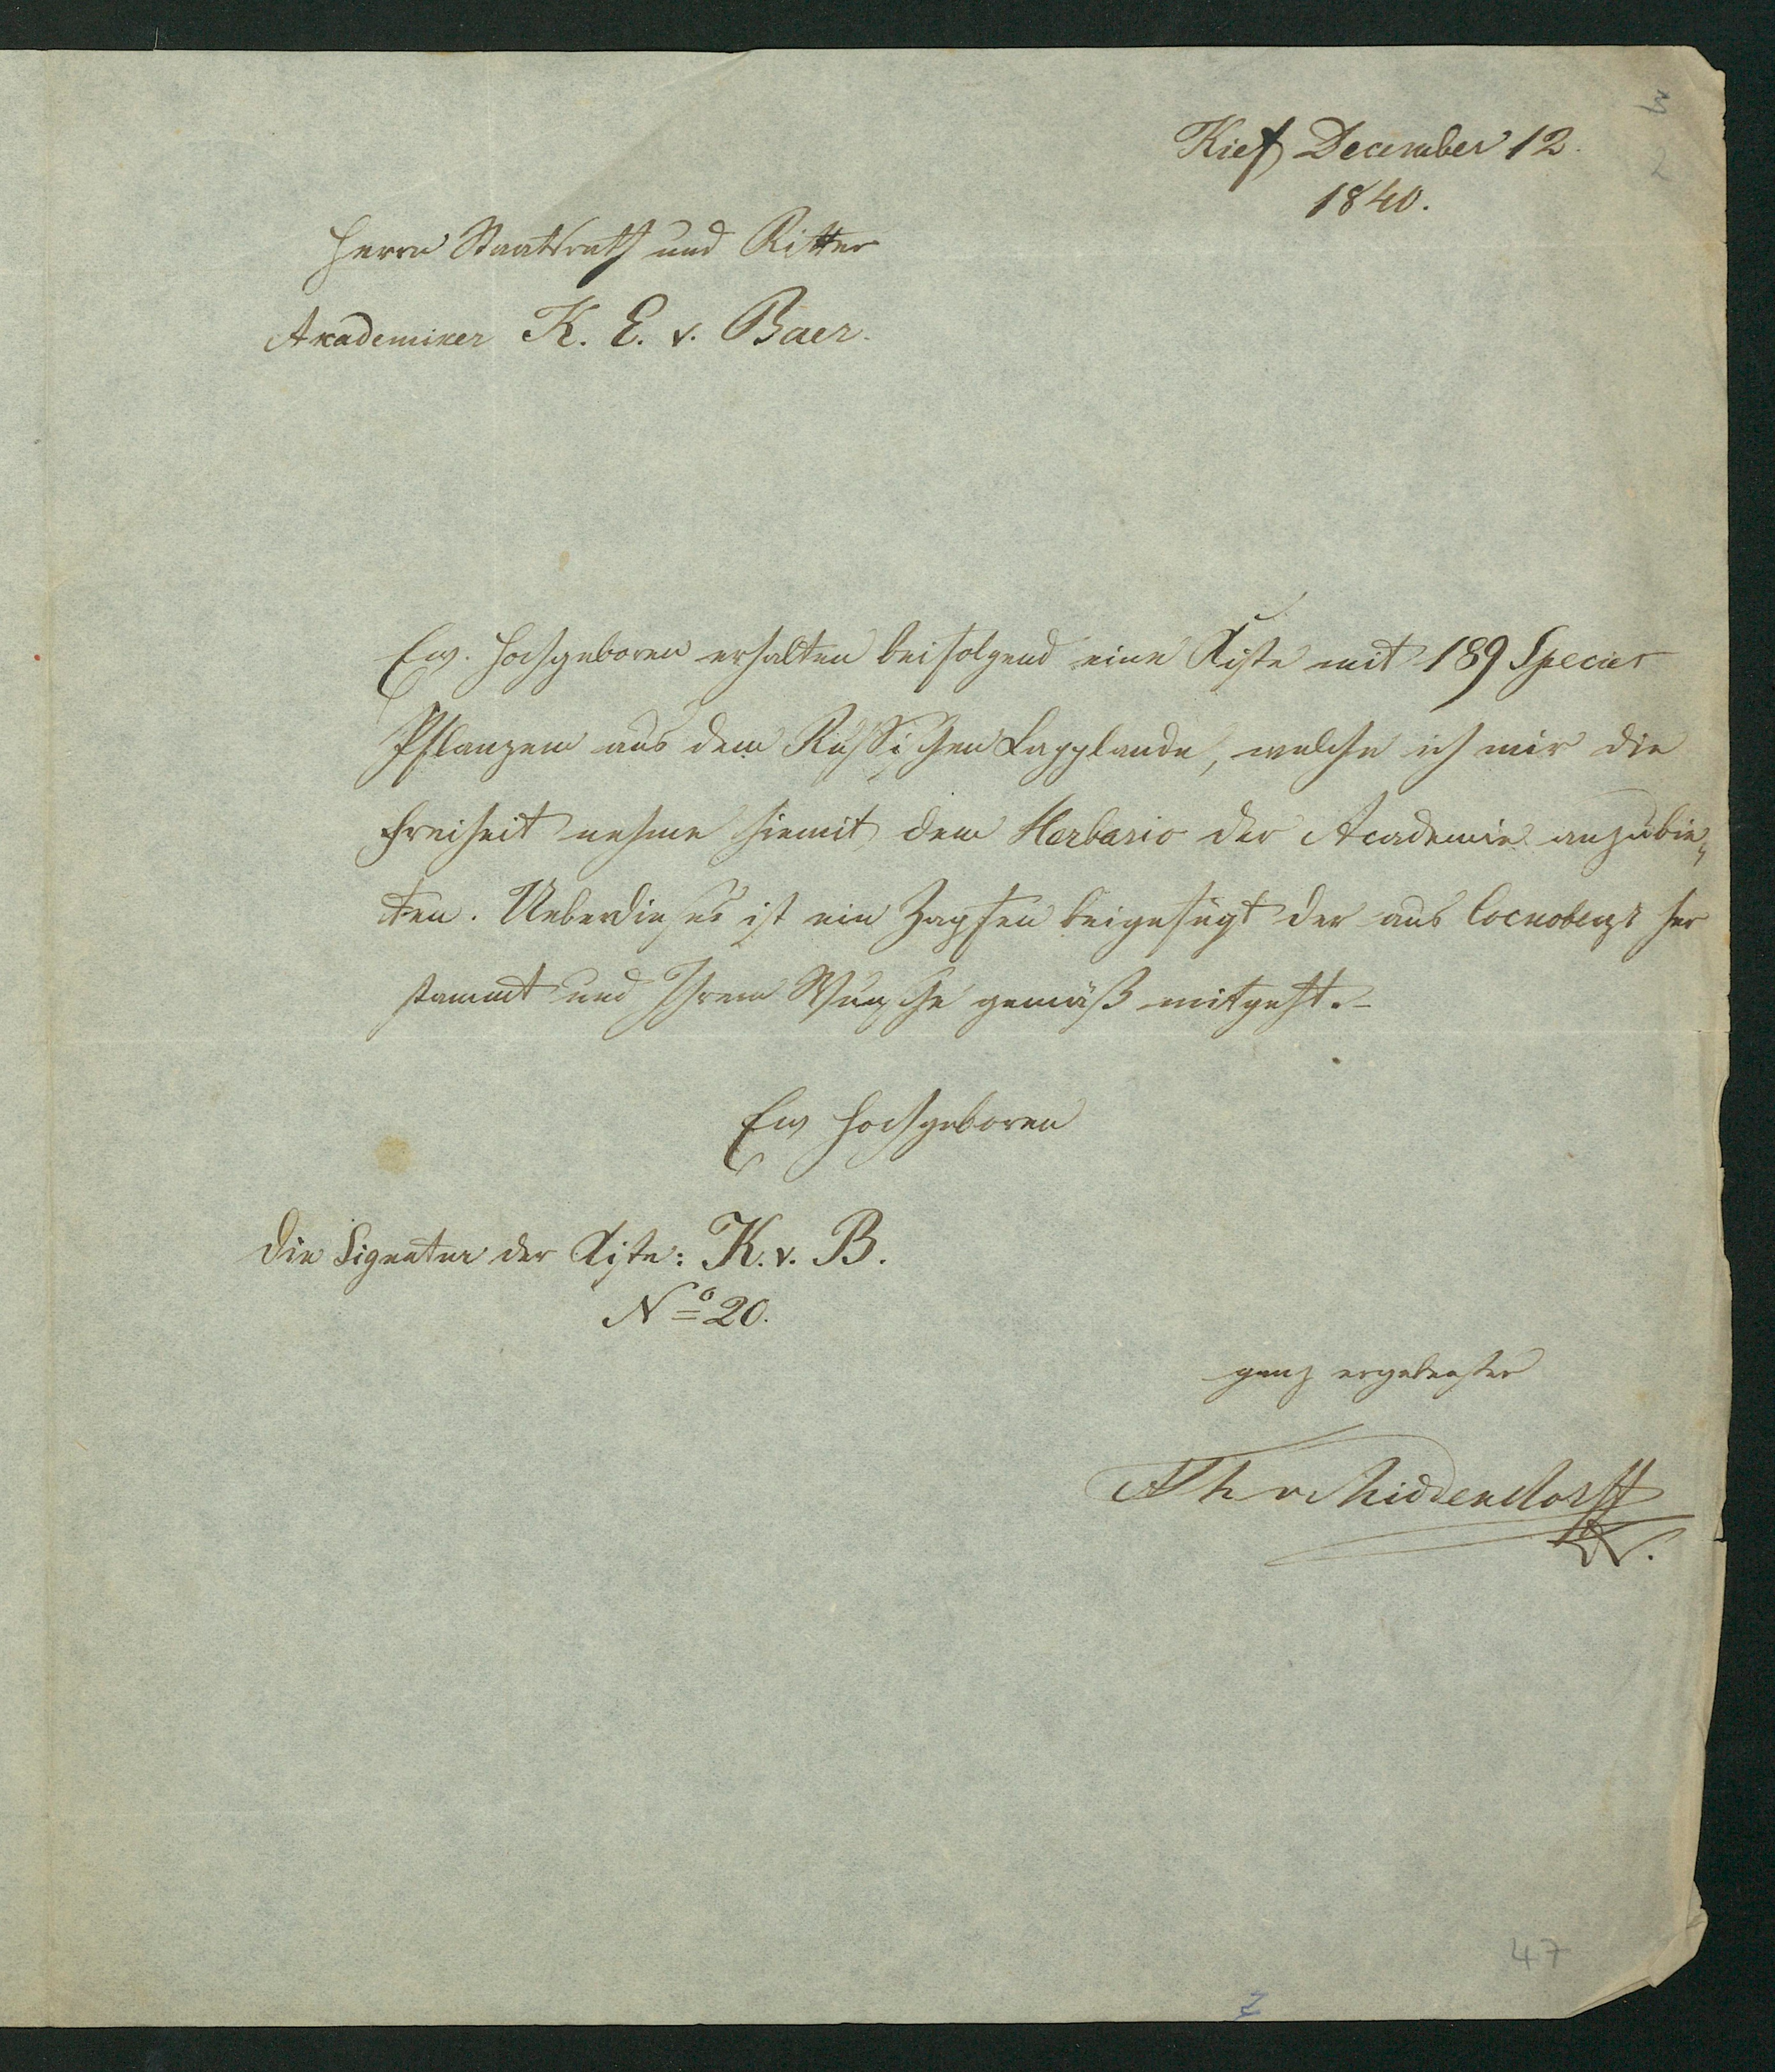 Kief December 12.
1840.
Herrn Staatsrath und Ritter
Akademiker K. E. v. Baer.
Ew. Hochgeboren erhalten beifolgend eine Kiste mit 189 Species
Pflanzen aus dem Russischen Lapplande, welche ich mir die
Freiheit nehme hiemit dem Herbario der Academie anzubie„
ten. Ueberdieses ist ein Zapfen beigefügt der aus her
stammt und Ihrem Wunsche gemäß mitgeht.–
Ew Hochgeboren
Die Signatur der Kiste: K. v. B.
No 20.
ganz ergebenster
A Th v Middendorff
47